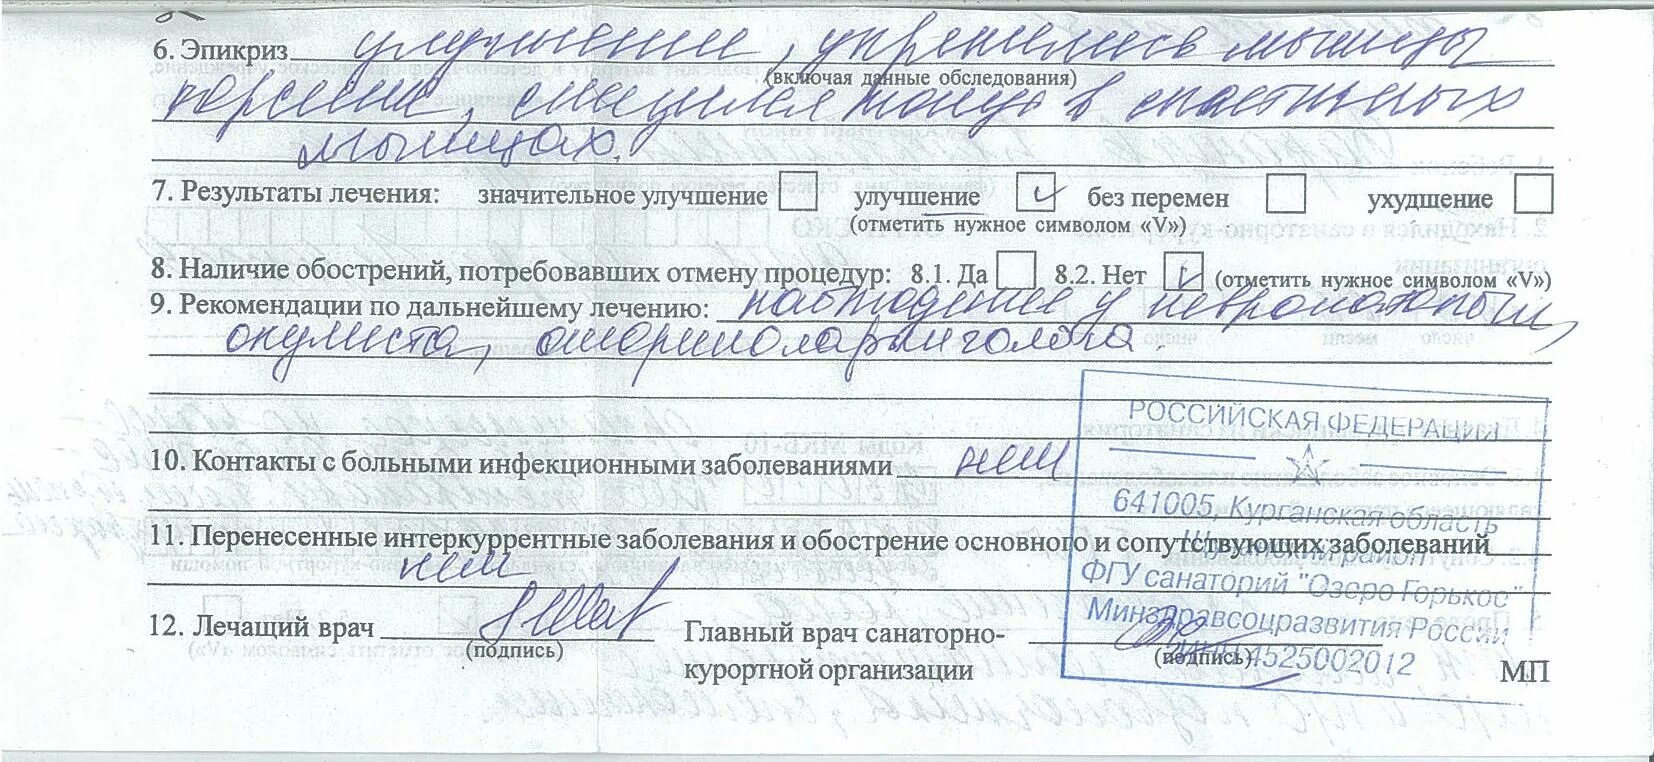 6. Эпикриз улучшение, укрепились мышцы
(включая данные обследования)
спастичных
мышцах.
7. Результаты лечения: значительное улучшение улучшение V без перемен ухудшение
(отметить нужное символом «V»)
8. Наличие обострений, потребовавших отмену процедур: 8.1. Да 8.2. Нет V (отметить нужное символом «V»)
9. Рекомендации по дальнейшему лечению: наблюдение у невропатолога,
окулиста, оториноларинголога.
РОССИЙСКАЯ ФЕДЕРАЦИЯ
10. Контакты с больными инфекционными заболеваниями нет
641005, Курганская область
11. Перенесенные интеркуррентные заболевания и обострение основного и сопутствующих заболеваний
район
нет
ФГУ санаторий "Озеро Горькое"
Минздравсоцразвития России
12. Лечащий врач
(подпись)
Главный врач санаторно-
курортной организации
(подпись)
4525002012
МП